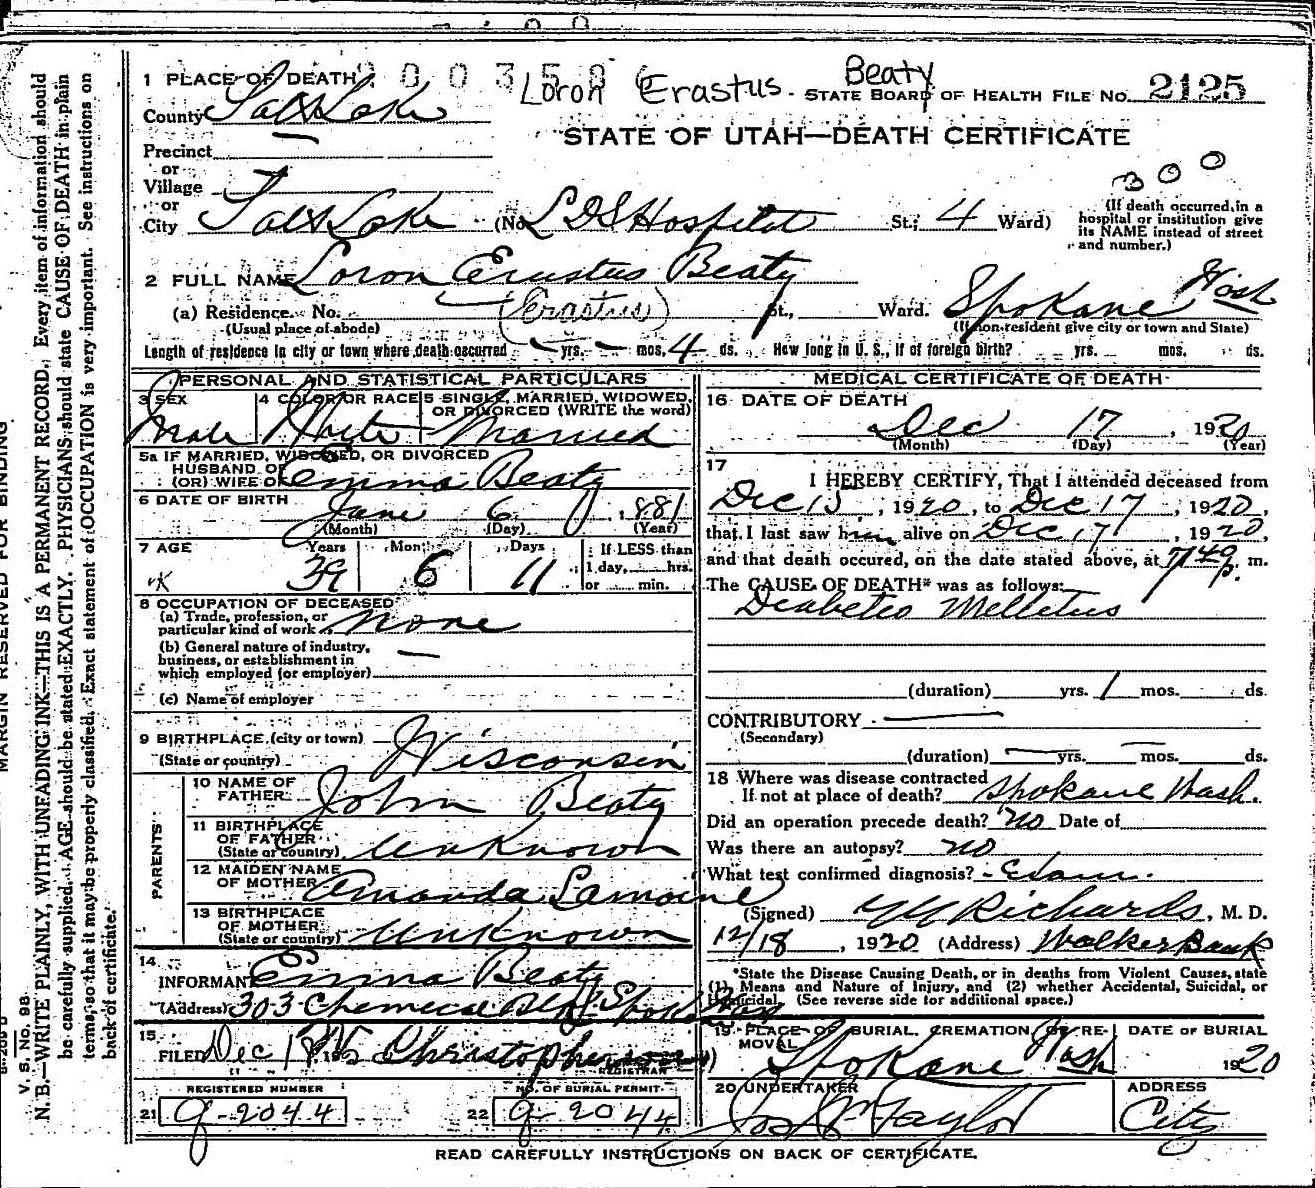 1 PLACE OF DEATH
Loron Erastus Beaty
STATE BOARD OF HEALTH FILE NO. 2125
County Salt Lake
STATE OF UTAH—DEATH CERTIFICATE
Precinct
or
Village
300
or
City Salt Lake (No. LDS Hospital St.; 4 Ward)
(If death occurred in a hospital or institution give its NAME instead of street and number.)
2 FULL NAME Loron Erustus Beaty
(Erastus)
(a) Residence. No. St., Ward. Spokane Wash
(Usual place of abode)
(If non-resident give city or town and State)
Length of residence in city or town where death occurred — yrs. — mos. 4 ds. How long in U. S., if of foreign birth? yrs. mos. ds.
PERSONAL AND STATISTICAL PARTICULARS
3 SEX
Male
4 COLOR OR RACE
White
5 SINGLE, MARRIED, WIDOWED, OR DIVORCED (WRITE the word)
Married
5a IF MARRIED, WIDOWED, OR DIVORCED
HUSBAND OF
(OR) WIFE OF Emma Beaty
6 DATE OF BIRTH
June 6, 1881
(Month) (Day) (Year)
7 AGE Years Months Days If LESS than
1 day, hrs.
or min.
39 6 11
8 OCCUPATION OF DECEASED
(a) Trade, profession, or
particular kind of work none
(b) General nature of industry,
business, or establishment in
which employed (or employer)
(c) Name of employer
9 BIRTHPLACE (city or town)
(State or country) Wisconsin
PARENTS
10 NAME OF FATHER John Beaty
11 BIRTHPLACE OF FATHER
(State or country) Unknown
12 MAIDEN NAME OF MOTHER Amanda Lamoine
13 BIRTHPLACE OF MOTHER
(State or country) Unknown
14
INFORMANT Emma Beaty
(Address) 303 Chemical
15
FILED Dec 18 Christopherson
REGISTRAR
REGISTERED NUMBER
21 9-2044
NO. OF BURIAL PERMIT
22 9-2044
MEDICAL CERTIFICATE OF DEATH
16 DATE OF DEATH
Dec 17, 1920
(Month) (Day) (Year)
17
I HEREBY CERTIFY, That I attended deceased from
Dec 15, 1920, to Dec 17, 1920,
that I last saw him alive on Dec 17, 1920,
and that death occured, on the date stated above, at 7:49 p. m.
The CAUSE OF DEATH* was as follows:
Diabetes Melletus
(duration) yrs. 1 mos. ds.
CONTRIBUTORY —
(Secondary)
(duration) — yrs. — mos. ds.
18 Where was disease contracted
If not at place of death? Spokane Wash.
Did an operation precede death? no Date of
Was there an autopsy? no
What test confirmed diagnosis? Exam.
(Signed) Richards, M. D.
12/18, 1920 (Address) Walker Bank
*State the Disease Causing Death, or in deaths from Violent Causes, state
(1) Means and Nature of Injury, and (2) whether Accidental, Suicidal, or
Homicidal. (See reverse side for additional space.)
19 PLACE OF BURIAL, CREMATION, OR REMOVAL
Spokane Wash
DATE OF BURIAL
1920
20 UNDERTAKER
Taylor
ADDRESS
City
READ CAREFULLY INSTRUCTIONS ON BACK OF CERTIFICATE.
MARGIN RESERVED FOR BINDING
V. S. No. 98
N. B.—WRITE PLAINLY, WITH UNFADING INK—THIS IS A PERMANENT RECORD. Every item of information should
be carefully supplied. AGE should be stated EXACTLY. PHYSICIANS should state CAUSE OF DEATH in plain
terms, so that it may be properly classified. Exact statement of OCCUPATION is very important. See instructions on
back of certificate.